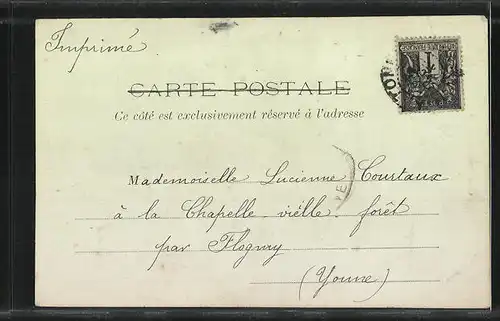 Imprimé
CARTE POSTALE
Ce côté est exclusivement réservé à l'adresse
Mademoiselle Lucienne Courtaux
à la Chapelle vieille forêt
par Flogny
(Yonne)